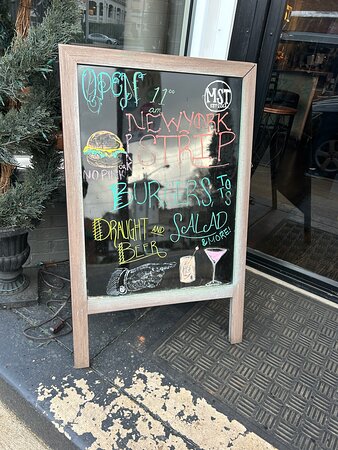 OPEN 11:00
am
MST
NEW YORK
STRIP
NO PINK
BURGERS, TOTS
DRAUGHT AND SALAD
BEER & MORE!